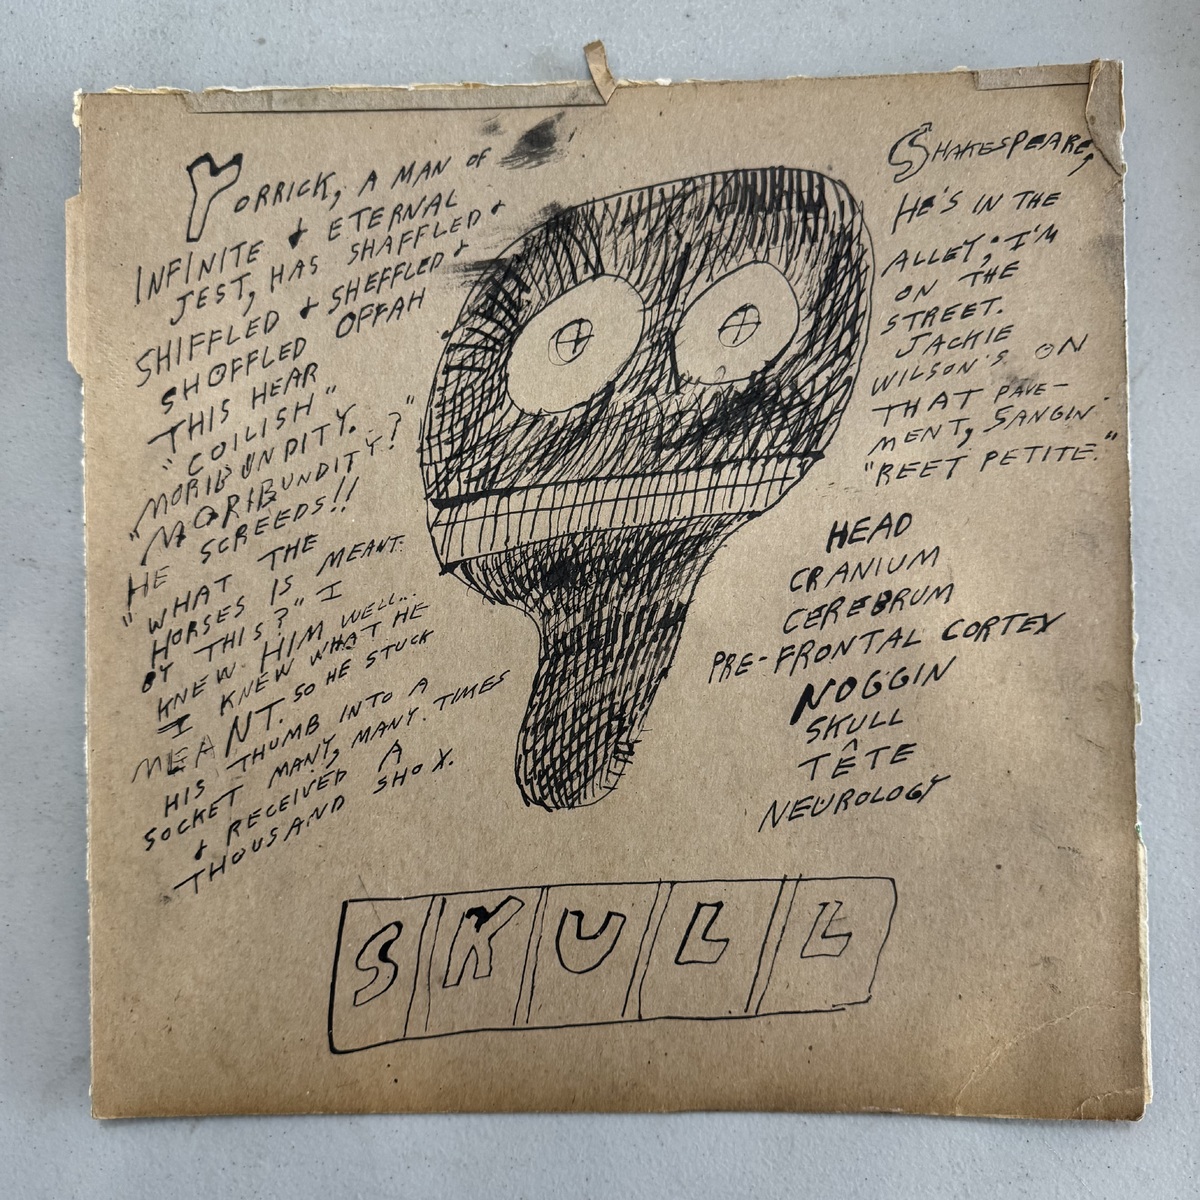 YORRICK, A MAN OF
INFINITE & ETERNAL
JEST, HAS SHAFFLED &
SHIFFLED & SHEFFLED &
SHOFFLED OFFAH
THIS HEAR
"COILISH"
MORIBUNDITY.
"MORIBUNDITY?"
HE SCREEDS!!
"WHAT THE
HORSES IS MEANT
BY THIS?" I
KNEW HIM WELL...
I KNEW WHAT HE
MEANT. SO HE STUCK
HIS THUMB INTO A
SOCKET MANY, MANY. TIMES
& RECEIVED A
THOUSAND SHOX.
SHAKESPEARE,
HE'S IN THE
ALLEY, I'M
ON THE
STREET.
JACKIE
WILSON'S ON
THAT PAVE-
MENT, SANGIN'
"REET PETITE."
HEAD
CRANIUM
CEREBRUM
PRE-FRONTAL CORTEX
NOGGIN
SKULL
TÊTE
NEUROLOGY
SKULL